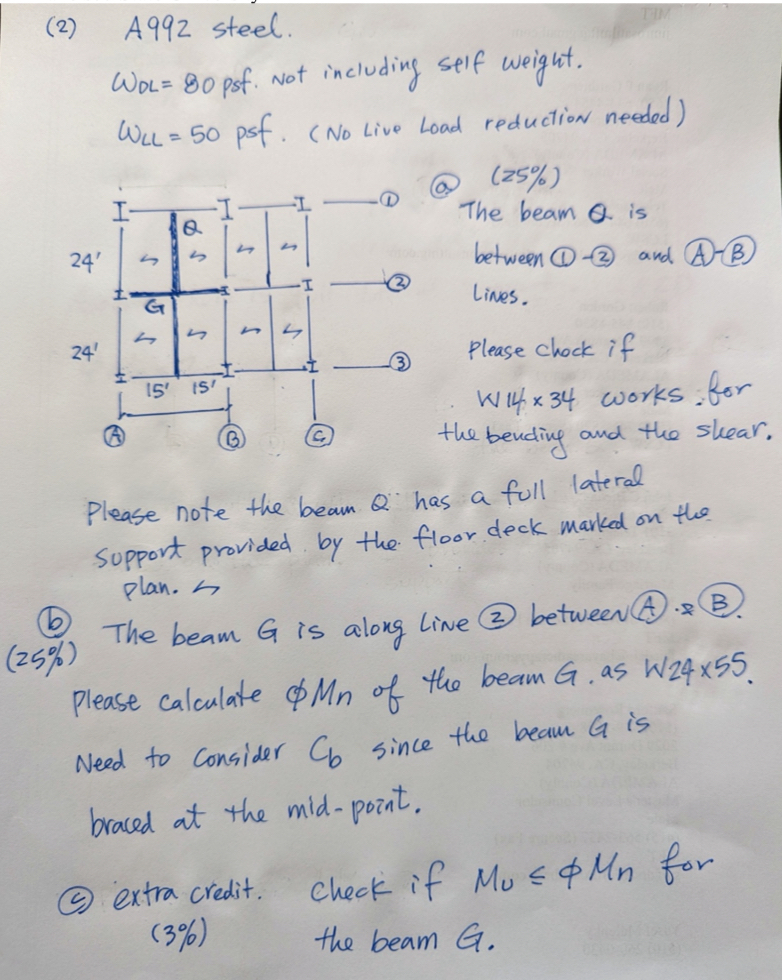 (2) A992 steel.
WDL = 80 psf. Not including self weight.
WLL = 50 psf. (No Live Load reduction needed)
ⓐ (25%)
The beam Q is
between ①-② and Ⓐ-Ⓑ
Lines.
Please check if
W14 x 34 works for
the bending and the shear.
①
Q
24'
②
G
24'
③
15' 15'
Ⓐ Ⓑ Ⓒ
Please note the beam Q has a full lateral
support provided by the floor deck marked on the
plan.
ⓑ The beam G is along Line ② between Ⓐ & Ⓑ.
(25%)
Please calculate φMn of the beam G. as W24x55.
Need to consider Cb since the beam G is
braced at the mid-point.
ⓒ extra credit. check if Mu ≤ φMn for
(3%) the beam G.